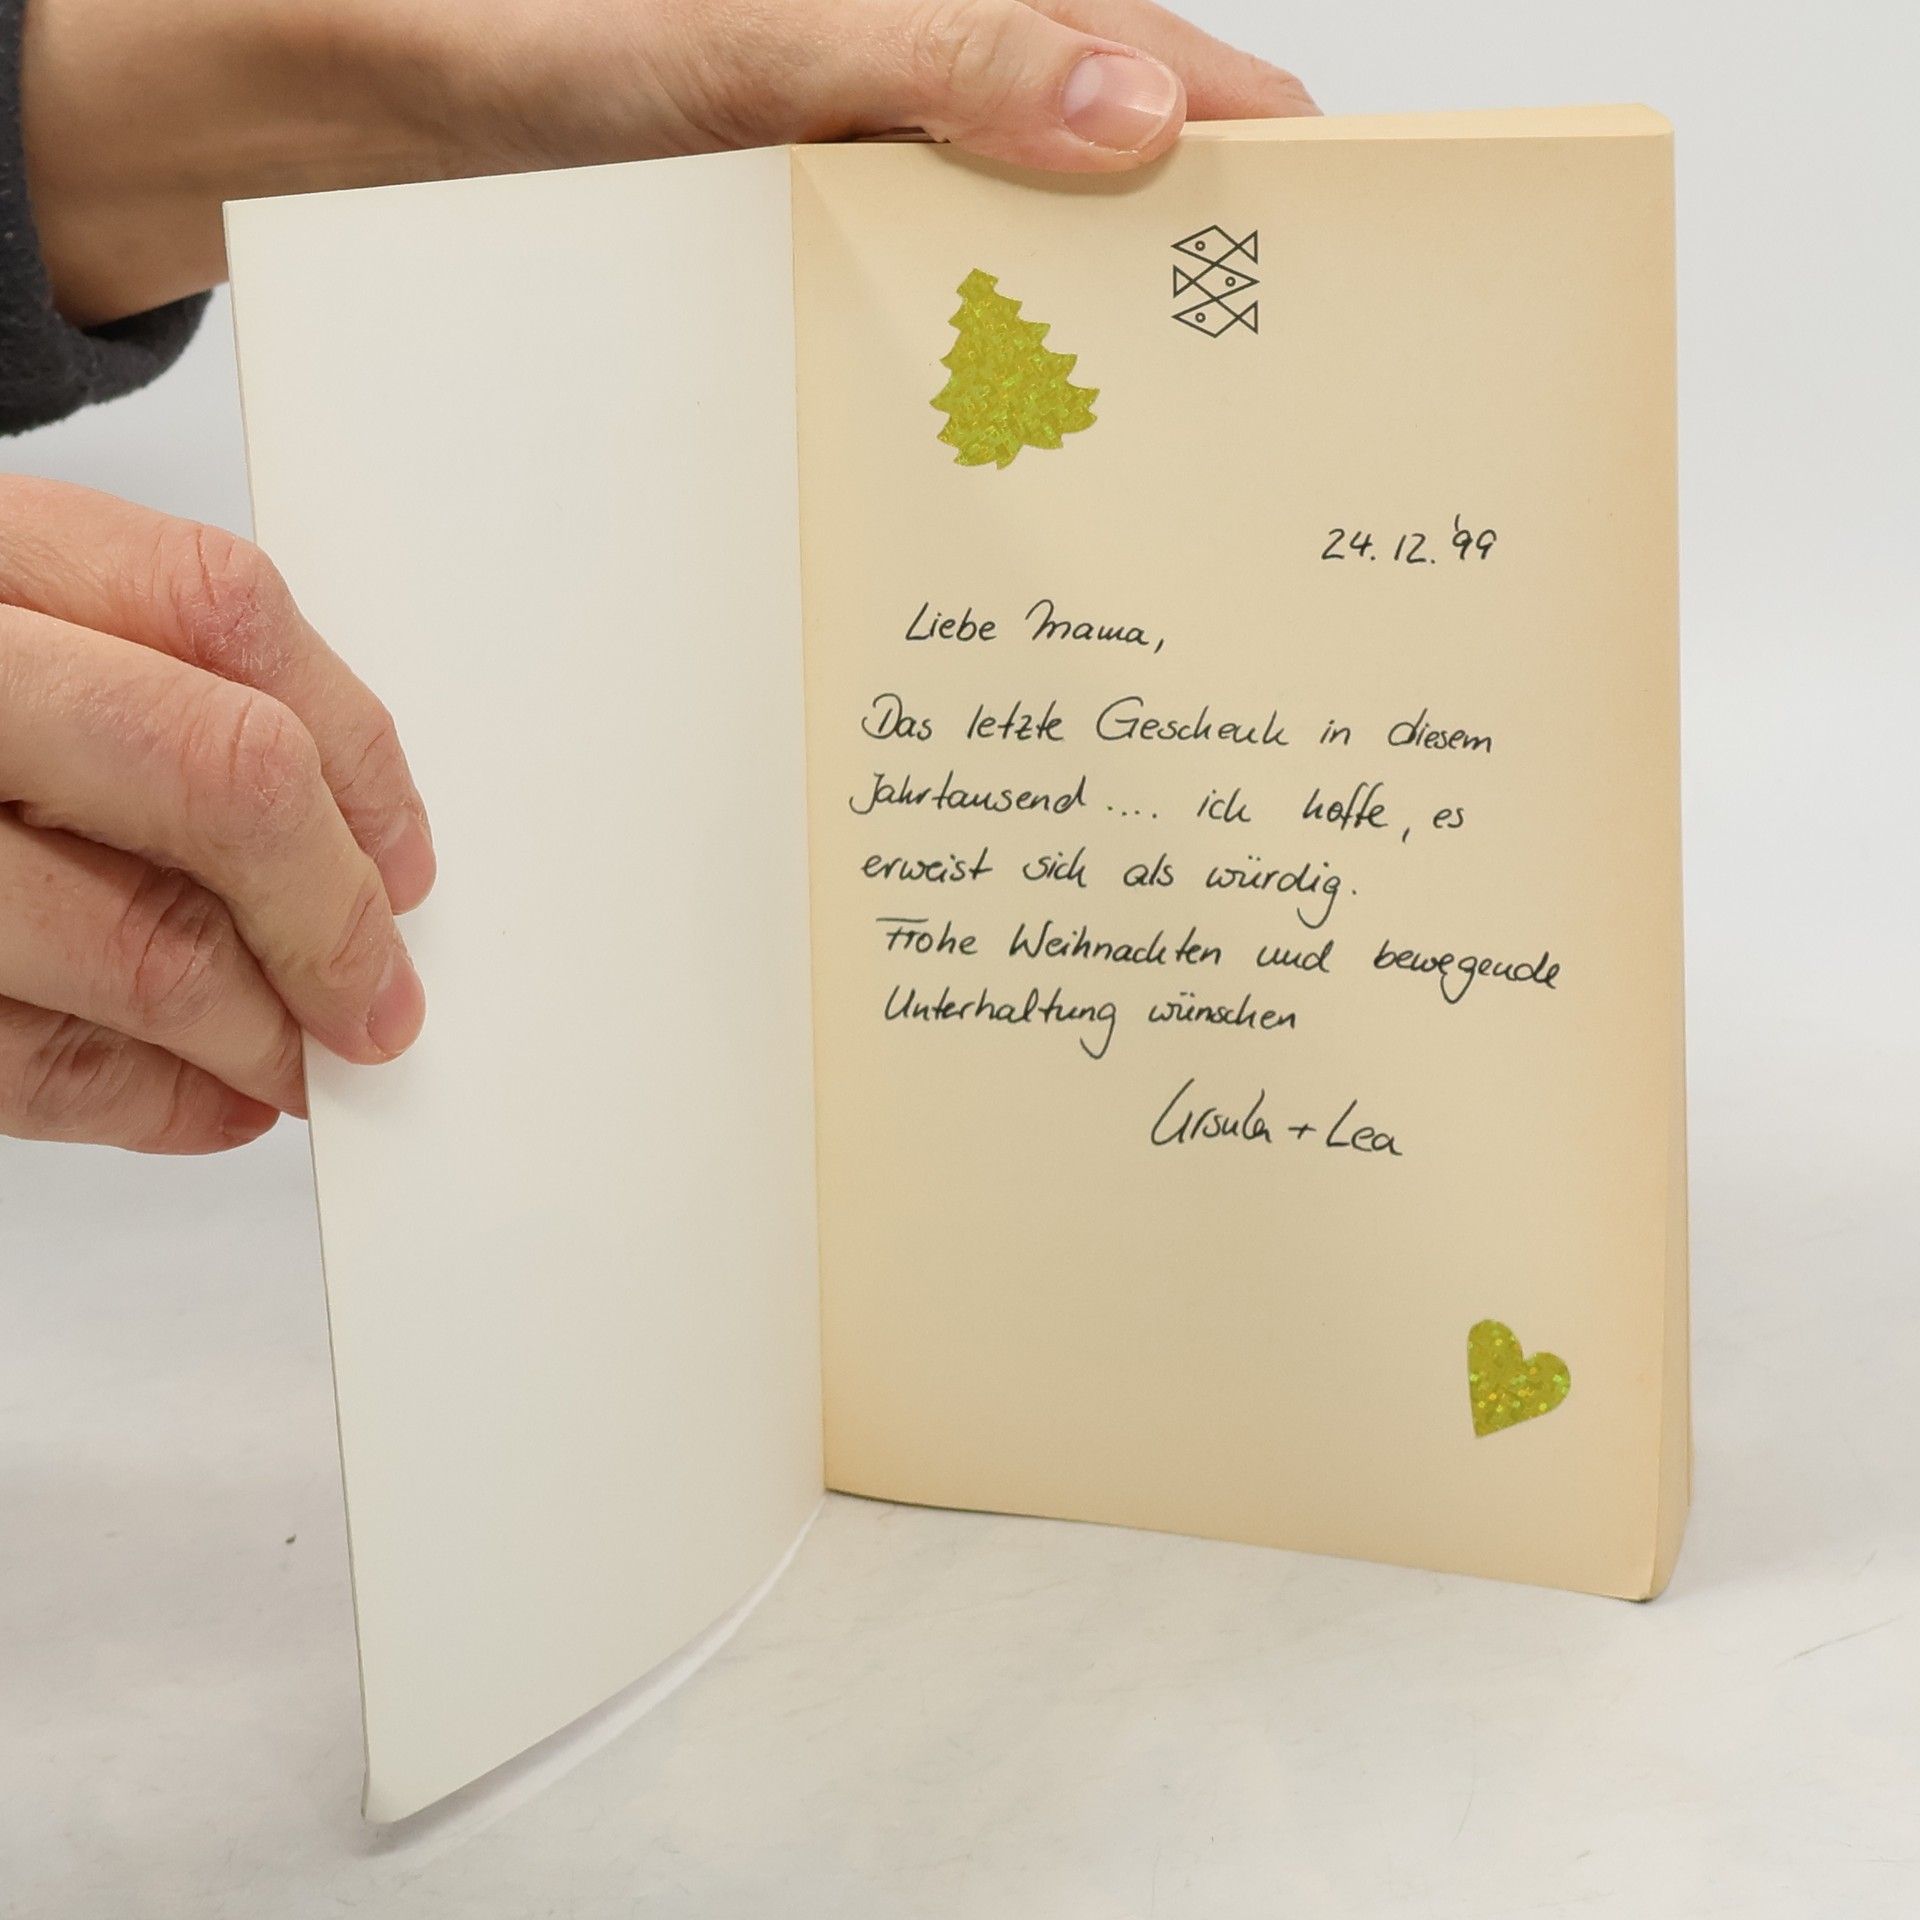 24.12.'99
Liebe Mama,
Das letzte Geschenk in diesem
Jahrtausend .... ich hoffe, es
erweist sich als würdig.
Frohe Weihnachten und bewegende
Unterhaltung wünschen
Ursula + Lea